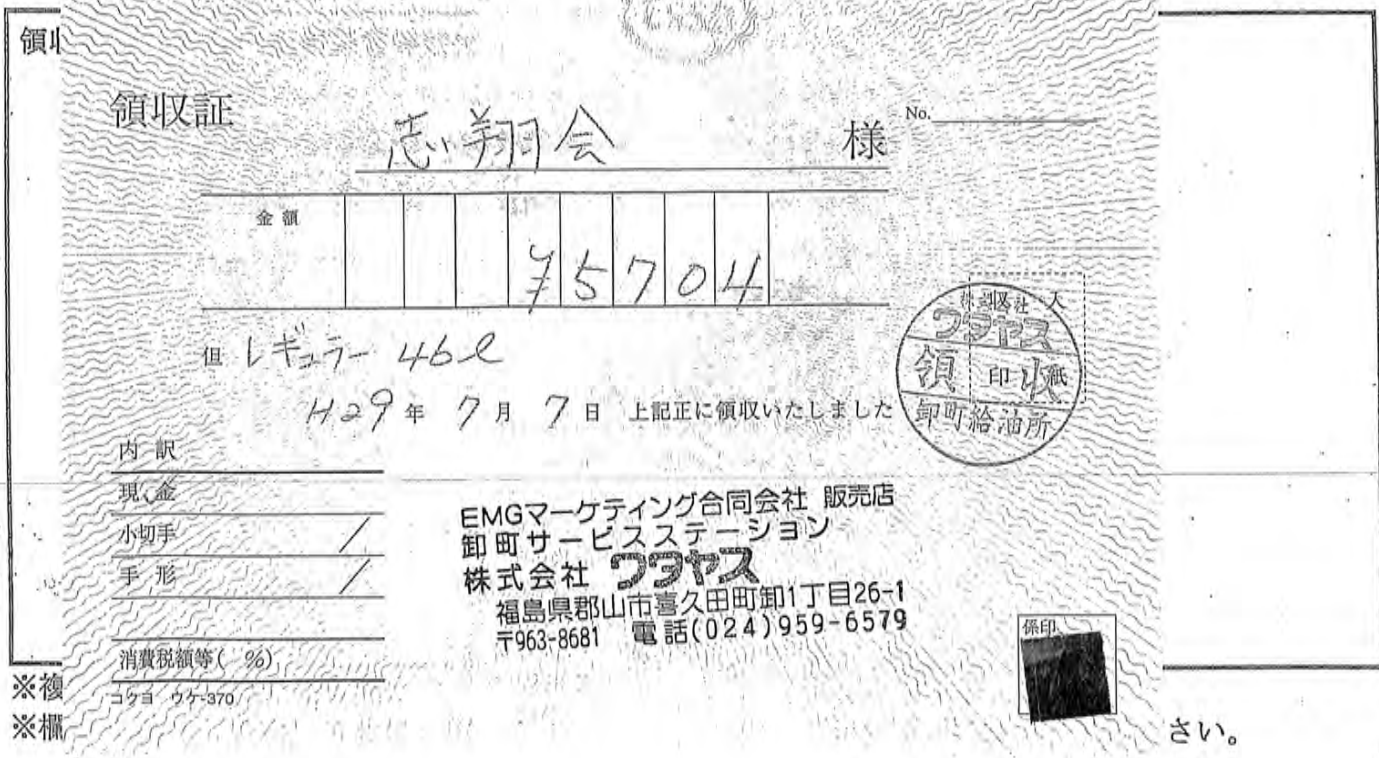 領収
領収証
志翔会 様
No.
金額
¥5704
但 レギュラー 46ℓ
H29年 7月 7日 上記正に領収いたしました
株式会社
ワタヤス
領収
卸町給油所
収入
印紙
内訳
現金
小切手 /
手形 /
消費税額等( %)
コクヨ ウケ-370
EMGマーケティング合同会社 販売店
卸町サービスステーション
株式会社 ワタヤス
福島県郡山市喜久田町卸1丁目26-1
〒963-8681 電話(024)959-6579
係印
※複
※欄
さい。